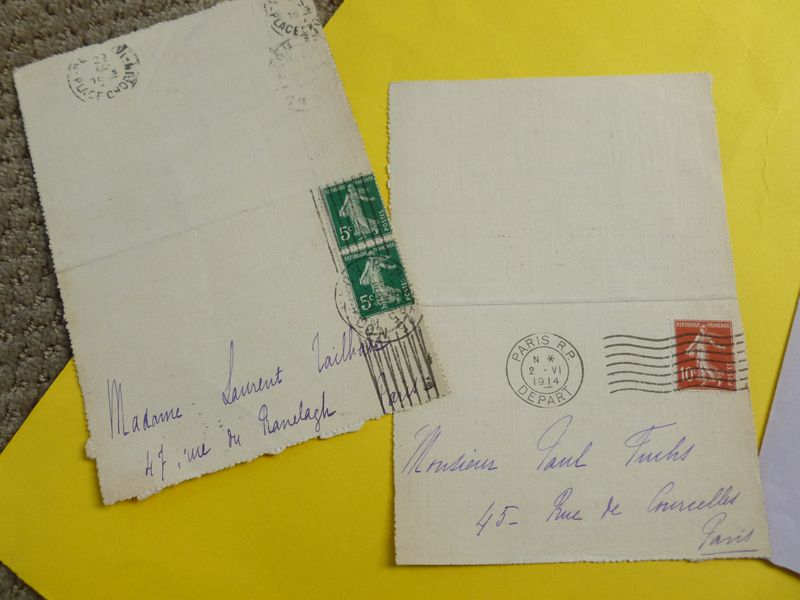 PLACE CHO
PLACE
REPUBLIQUE FRANÇAISE
5c
POSTES
REPUBLIQUE FRANÇAISE
5c
POSTES
Madame Laurent Tailhade
47, rue du Ranelagh
Paris
PARIS R.P.
N *
2 · VI
1914
DEPART
REPUBLIQUE FRANÇAISE
10c
POSTES
Monsieur Paul Fuchs
45- Rue de Courcelles
Paris